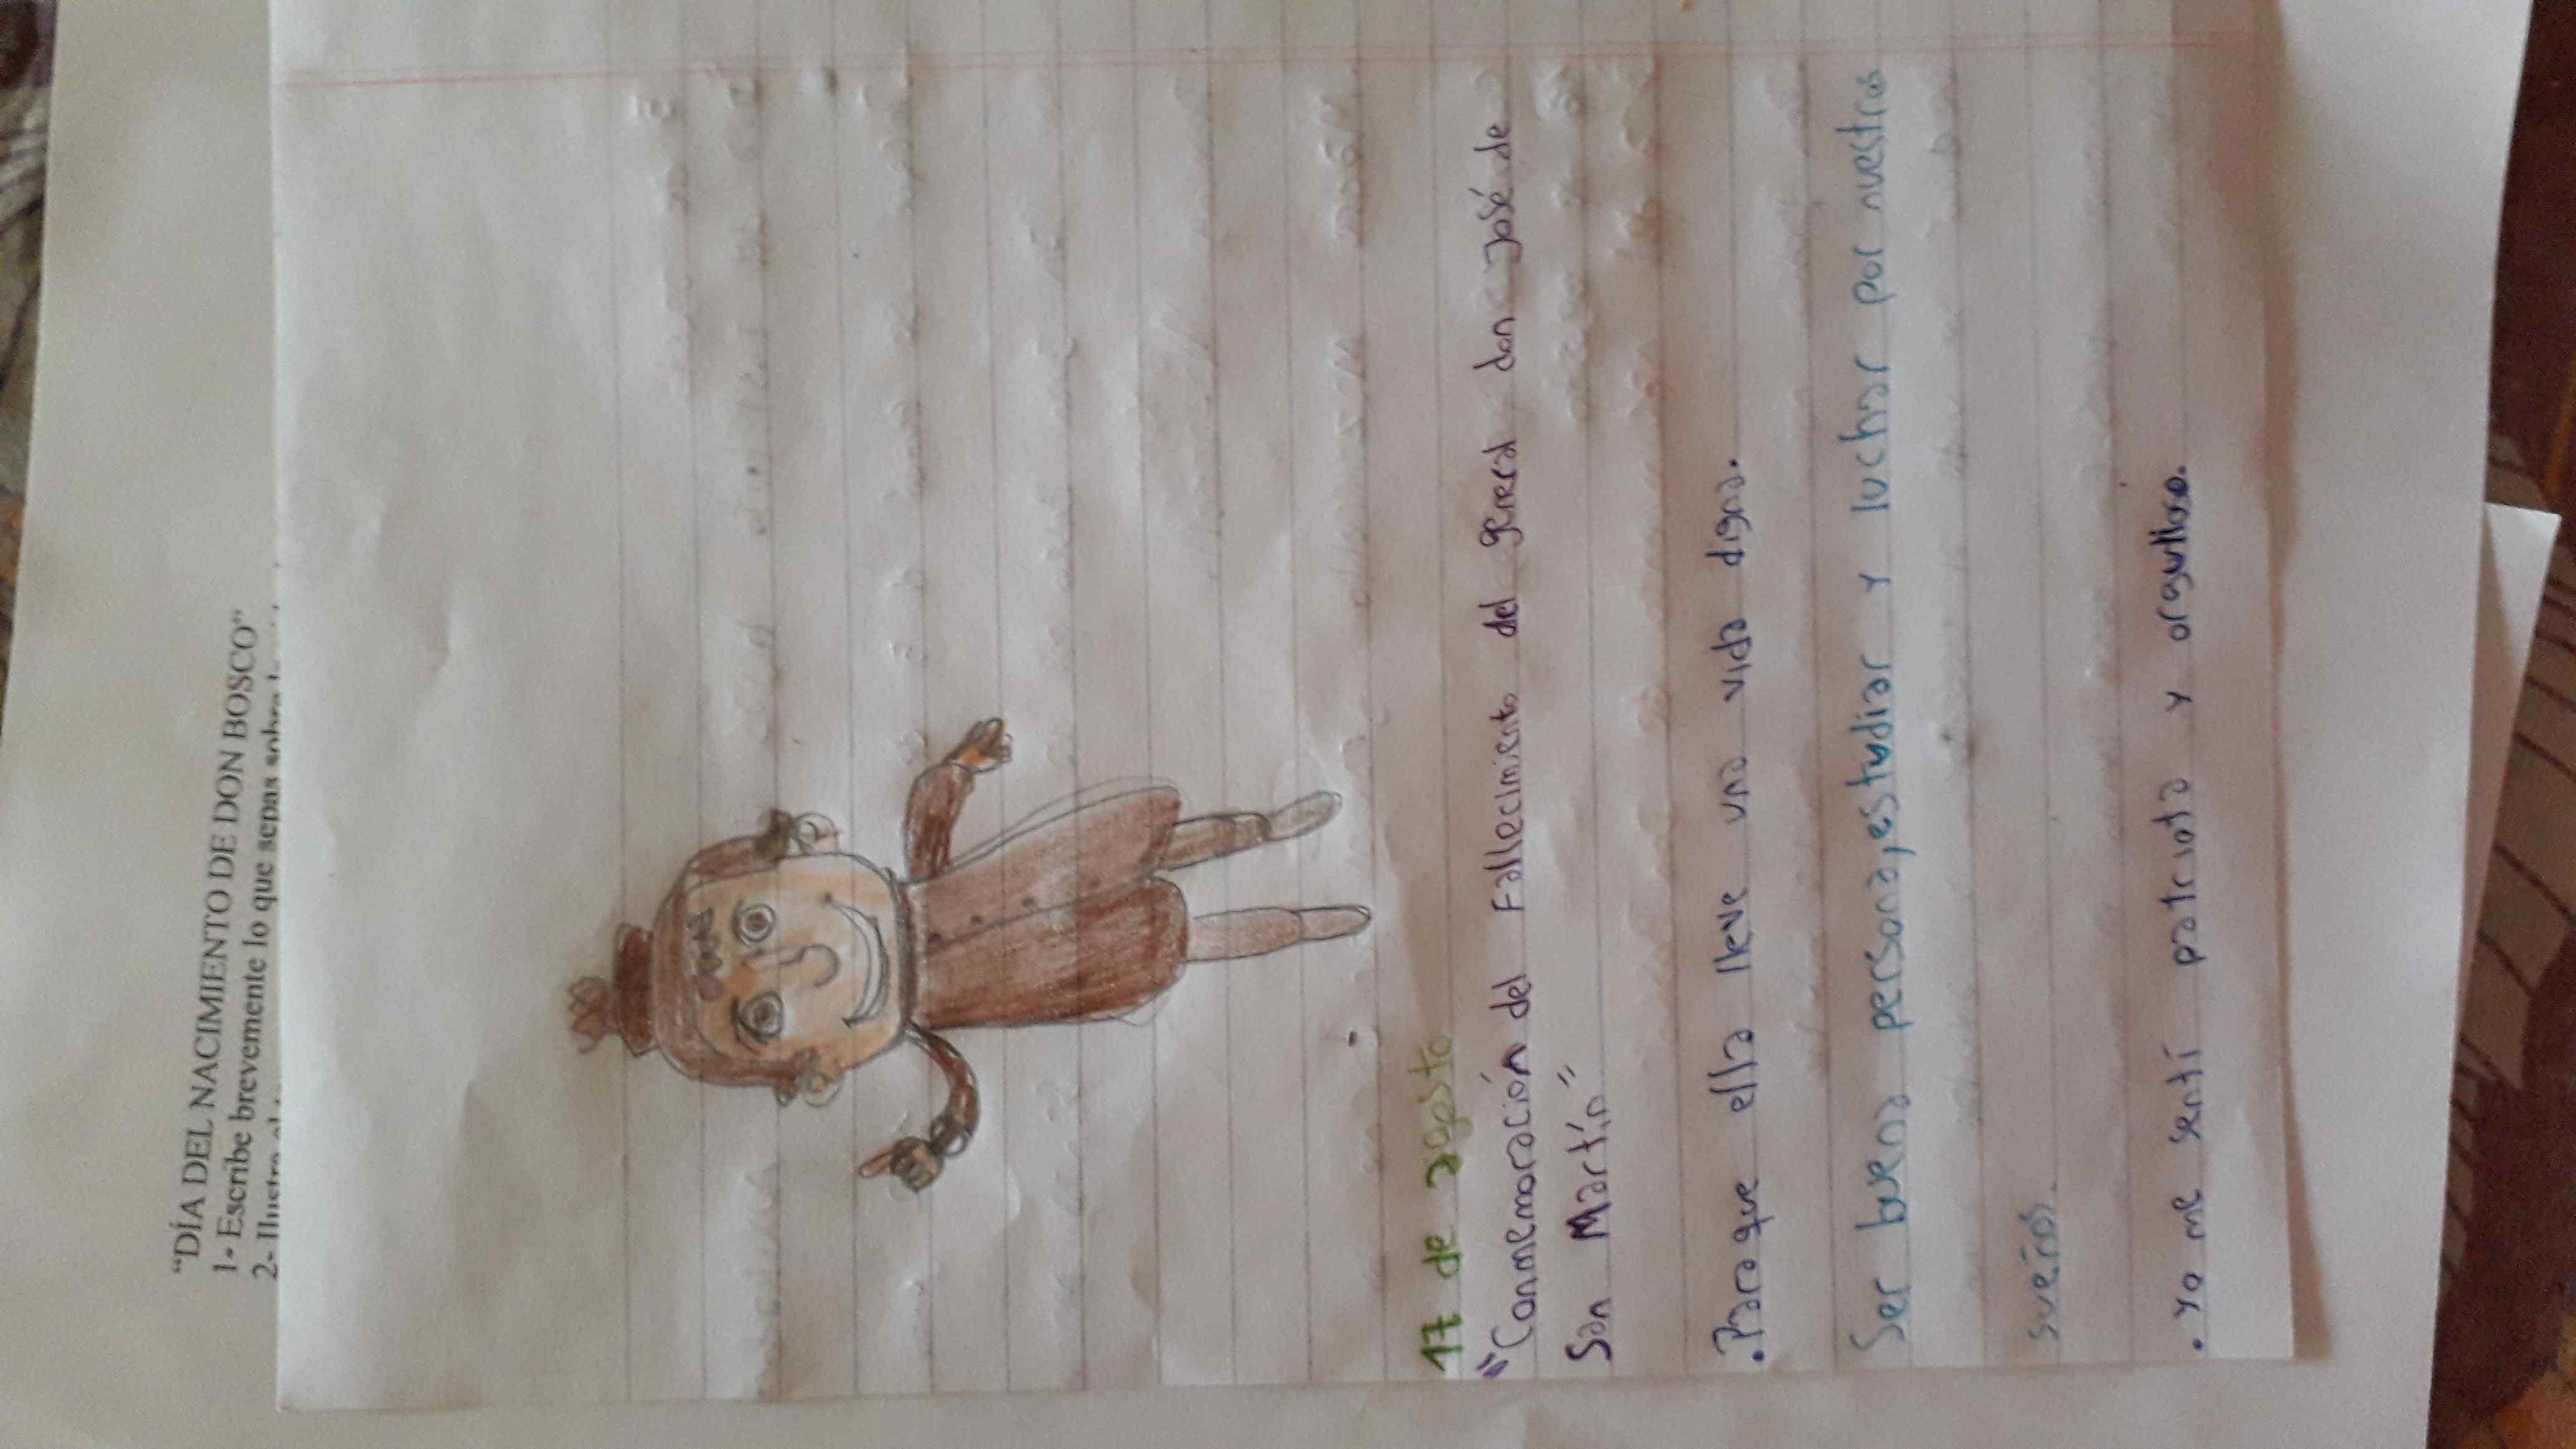 “DÍA DEL NACIMIENTO DE DON BOSCO”
1- Escribe brevemente lo que sepas sobre
2- Ilustra
17 de agosto
"Conmemoración del Fallecimiento del general don José de
San Martín"
.Para que ella lleve una vida digna.
Ser buena persona,estudiar y luchar por nuestros
sueños.
. Yo me sentí patriota y orgulloso.